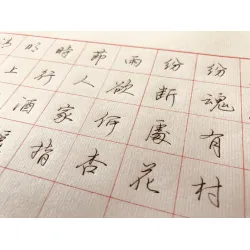 明時節雨纷纷
上行人欲断魂
酒家何處有
指杏花村